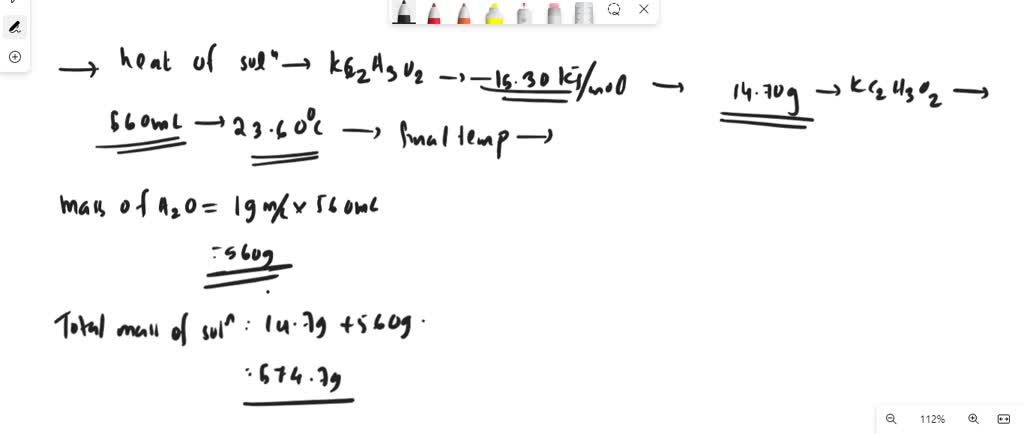 → heat of solⁿ → KC₂H₃O₂ → -15.30 KJ/mol → 14.70g → KC₂H₃O₂ →
560mL → 23.60°C → final temp →
mass of H₂O = 1g m/L × 560mL
= 560g
Total mass of solⁿ : 14.7g + 560g.
: 574.7g
112%